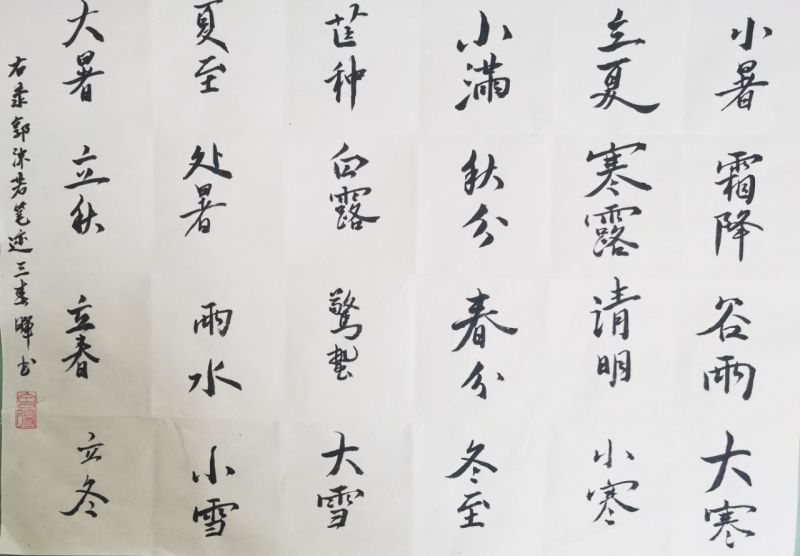 小暑 霜降 谷雨 大寒
立夏 寒露 清明 小寒
小满 秋分 春分 冬至
芒种 白露 驚蟄 大雪
夏至 处暑 雨水 小雪
大暑 立秋 立春 立冬
右录郭沫若笔迹三春晖书